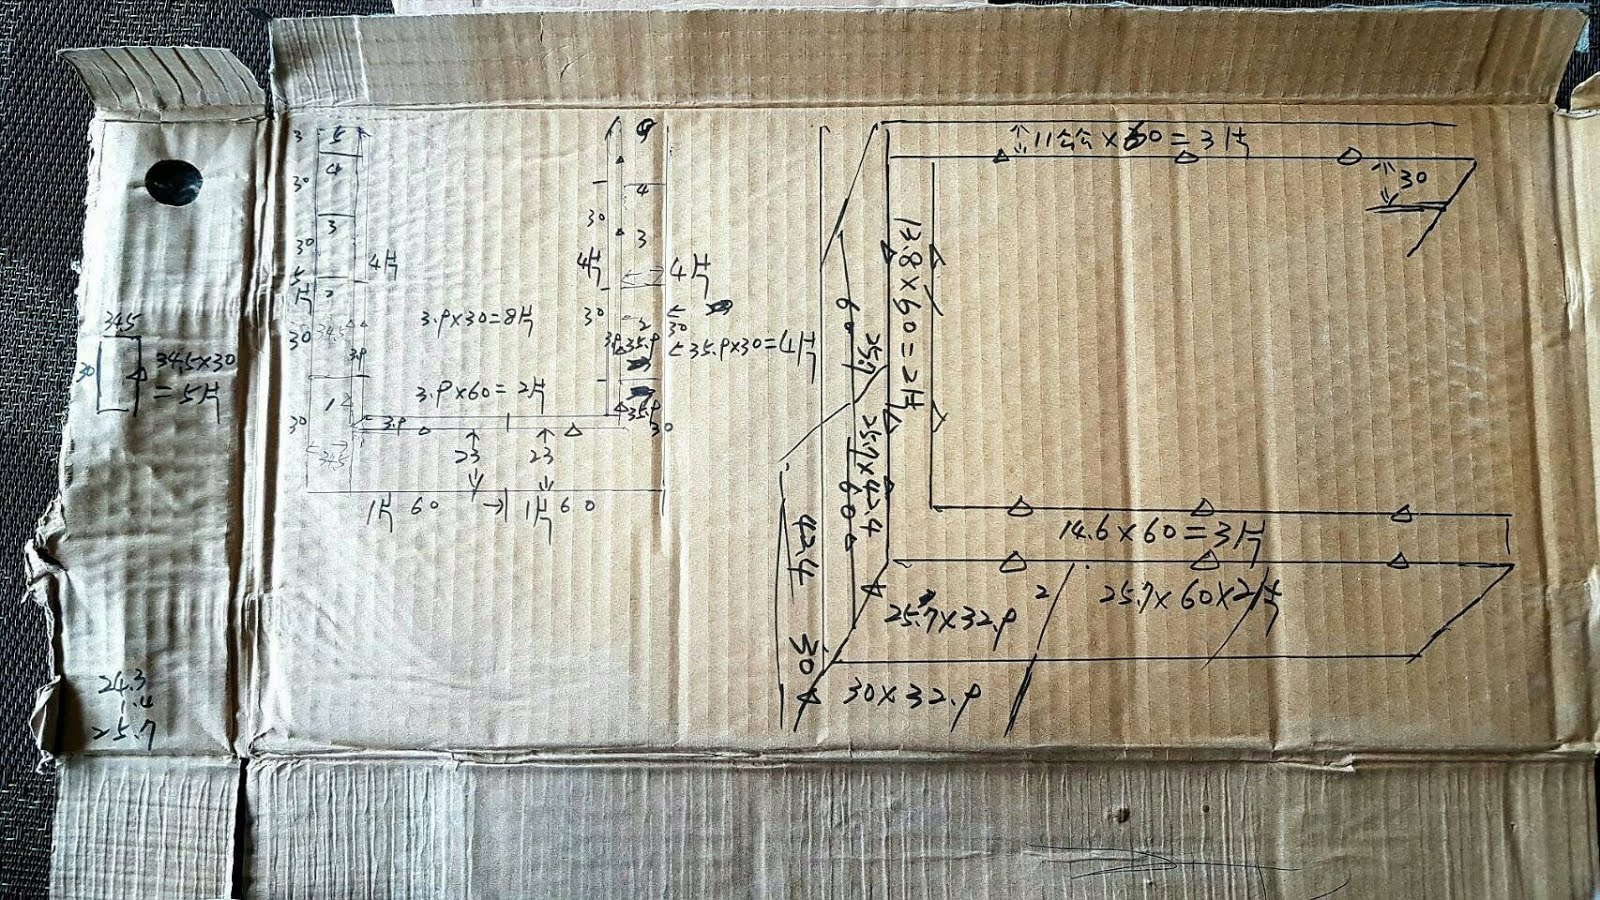 345
30
34.5×30
=5片
24.3
1.4
25.7
3
5
30
4
30
3
5
1片
4片
30
34.5
3.9
30
1
34.5
3.9×30=8片
3.9×60=2片
3.9
23
23
1片 60
1片 60
4
30
3
4片
4片
30
2
30
35.9
35.9×30=4片
35.9
30
11公分×60=3片
30
13.8×60=2片
60
25.7
25.7×42.4
60
42.4
30
14.6×60=3片
25.7×32.9
2
25.7×60×2片
30×32.9